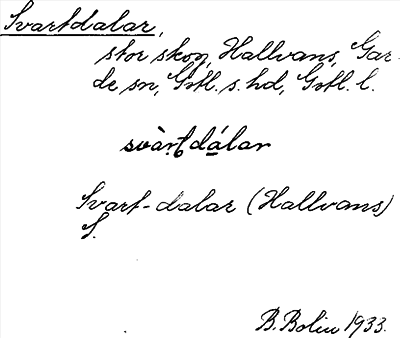 Svartdalar,
stor skog, Hallvans, Gar-
de sn, Gotl. s. hd, Gotl. l.
svàrtdálar
Svart-dalar (Hallvans)
S.
B. Bolin 1933.